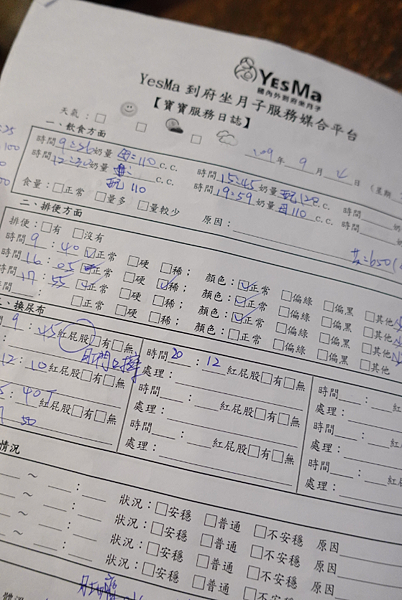 YESMA
國內外到府坐月子
YesMa 到府坐月子服務媒合平台
【寶寶服務日誌】
天氣：□ □ □
109年9月4日（星期
一、飲食方面
時間9：26奶量母：110c.c. 時間15：45奶量配128c.c. 時間
時間12：30奶量配110c.c. 時間19：59奶量母110c.c. 時間
食量：□正常 □量多 □量較少 原因：
二、排便方面
排便：□有 □沒有
時間9：40☑正常 □硬 □稀； 顏色：☑正常 □偏綠 □偏黑 □其他
時間16：05☑正常 □硬 ☑稀； 顏色：☑正常 □偏綠 □偏黑 □其他
時間17：55☑正常 □硬 □稀； 顏色：☑正常 □偏綠 □偏黑 □其他
時間 □正常 □硬 □稀； 顏色：□正常 □偏綠 □偏黑 □其他
三、換尿布
9：45紅屁股□有□無 時間20：12紅屁股□有□無 時間
處理： 處理：
12：10紅屁股□有□無 時間：紅屁股□有□無 時間
處理： 處理：
40紅屁股□有□無 時間：紅屁股□有□無 時間
50 處理： 處理：
情況
狀況：□安穩 □普通 □不安穩 原因
狀況：□安穩 □普通 □不安穩 原因
狀況：□安穩 □普通 □不安穩 原因
狀況：□安穩 □普通 □不安穩